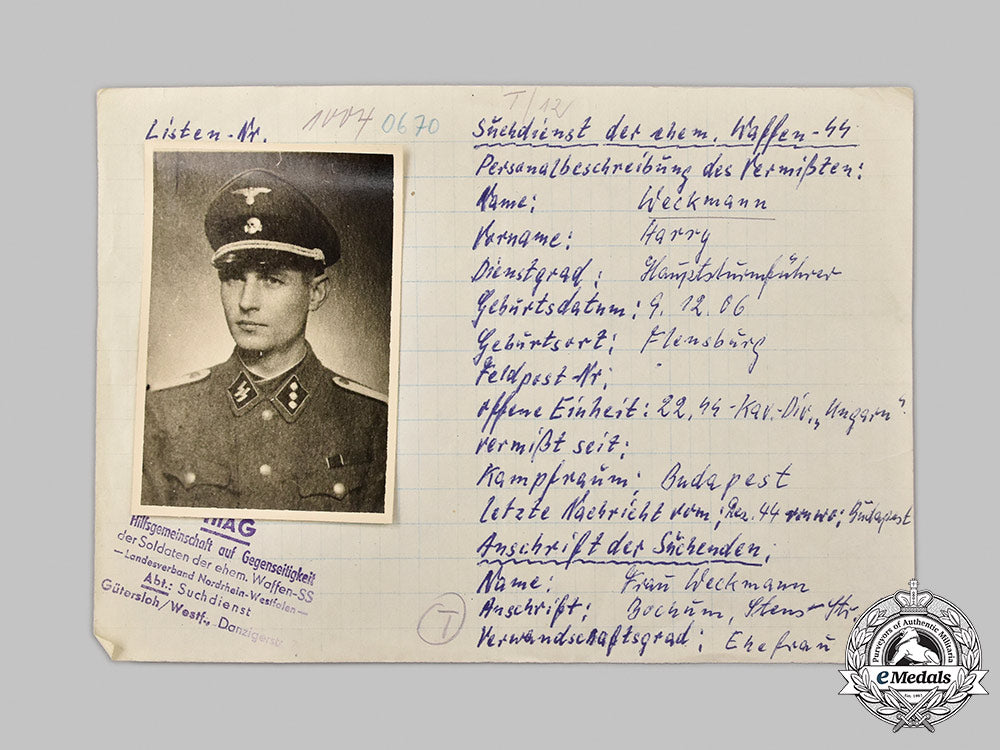 Listen-Nr. 1004 0670
T/12
Suchdienst der ehem. Waffen-SS
Personalbeschreibung des Vermißten:
Name: Weckmann
Vorname: Harry
Dienstgrad: Hauptsturmführer
Geburtsdatum: 9.12.06
Geburtsort: Flensburg
Feldpost Nr:
offene Einheit: 22. SS-Kav.-Div. „Ungarn".
vermißt seit:
Kampfraum: Budapest
letzte Nachricht vom: Dez. 44 von wo: Budapest
Anschrift der Suchenden:
Name: Frau Weckmann
Anschrift: Bochum, Str.
Verwandschaftsgrad: Ehefrau
T
HIAG
Hilfsgemeinschaft auf Gegenseitigkeit
der Soldaten der ehem. Waffen-SS
—Landesverband Nordrhein-Westfalen—
Abt.: Suchdienst
Gütersloh/Westf., Danzigerstr.
Purveyors of Authentic Militaria
eMedals
Est. 1967